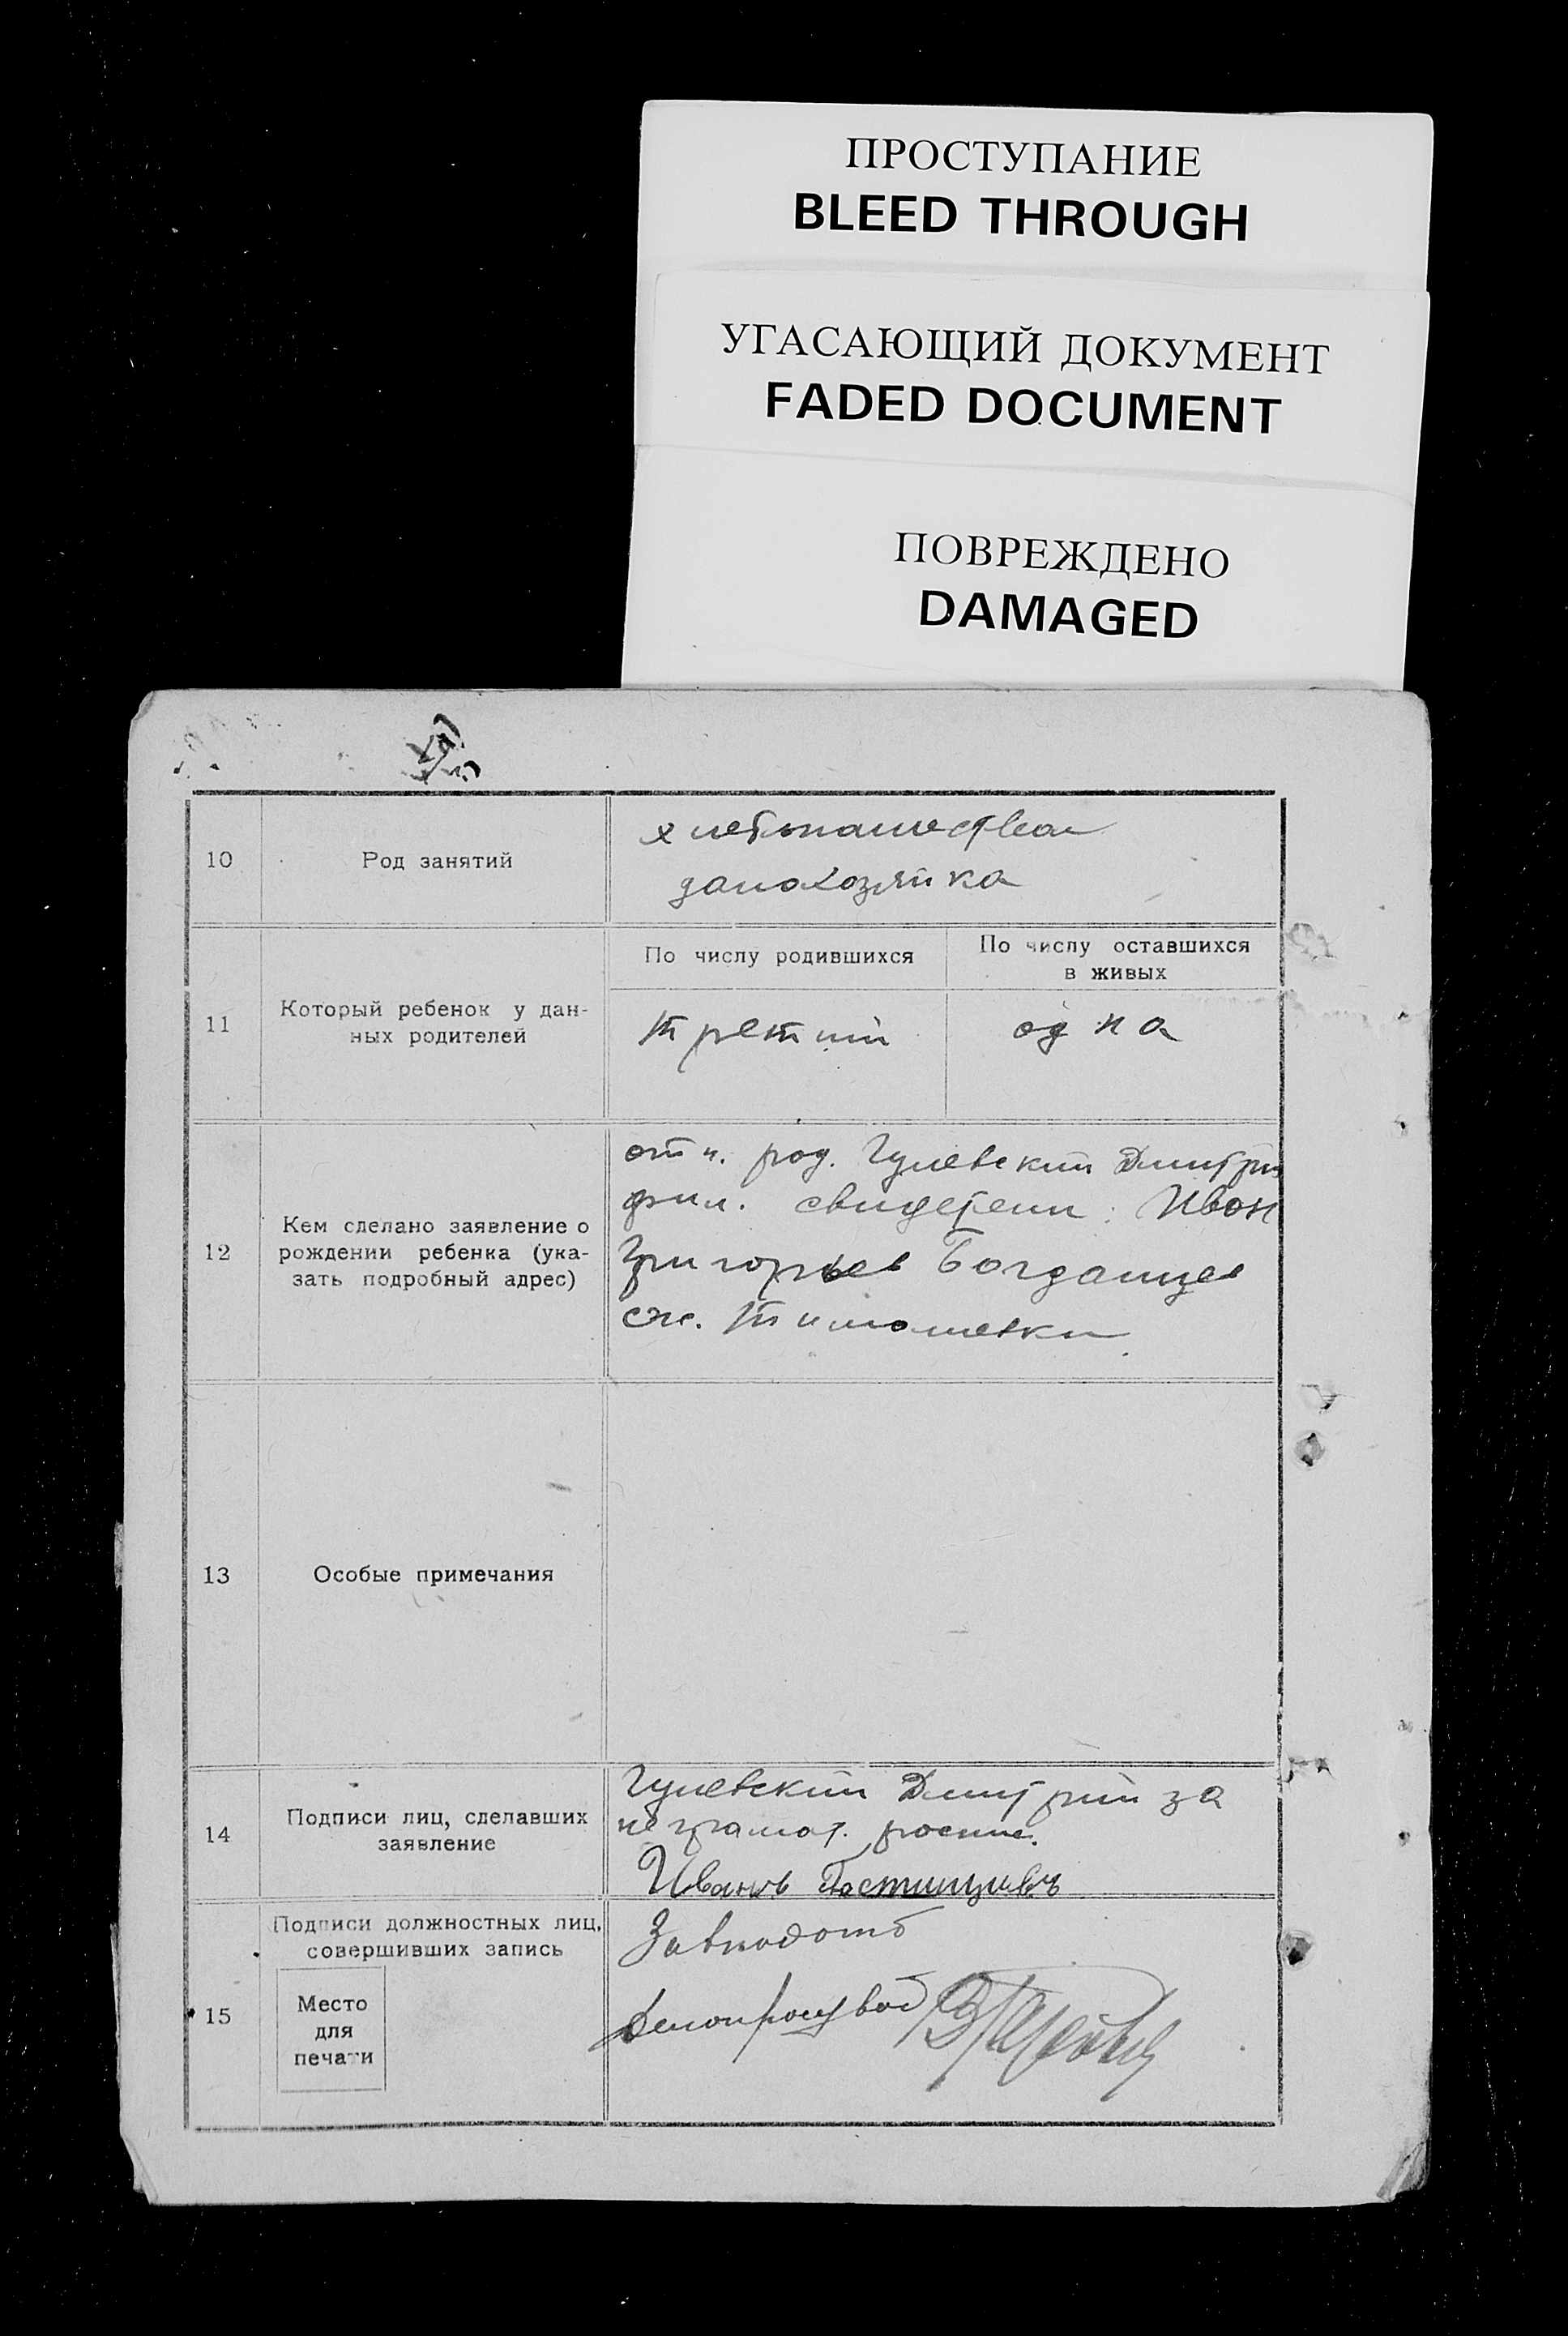 ПРОСТУПАНИЕ
BLEED THROUGH
УГАСАЮЩИЙ ДОКУМЕНТ
FADED DOCUMENT
ПОВРЕЖДЕНО
DAMAGED
10
Род занятий
домохозяйка
11
Который ребенок у дан-
ных родителей
По числу родившихся
По числу оставшихся
в живых
третий
одна
12
Кем сделано заявление о
рождении ребенка (ука-
зать подробный адрес)
род. Гулевский Дмитрий
свидетели: Иван
Григорьев
13
Особые примечания
14
Подписи лиц, сделавших
заявление
Гулевский Дмитрий за
неграмот.
Иванъ
15
Подписи должностных лиц,
совершивших запись
Место
для
печати